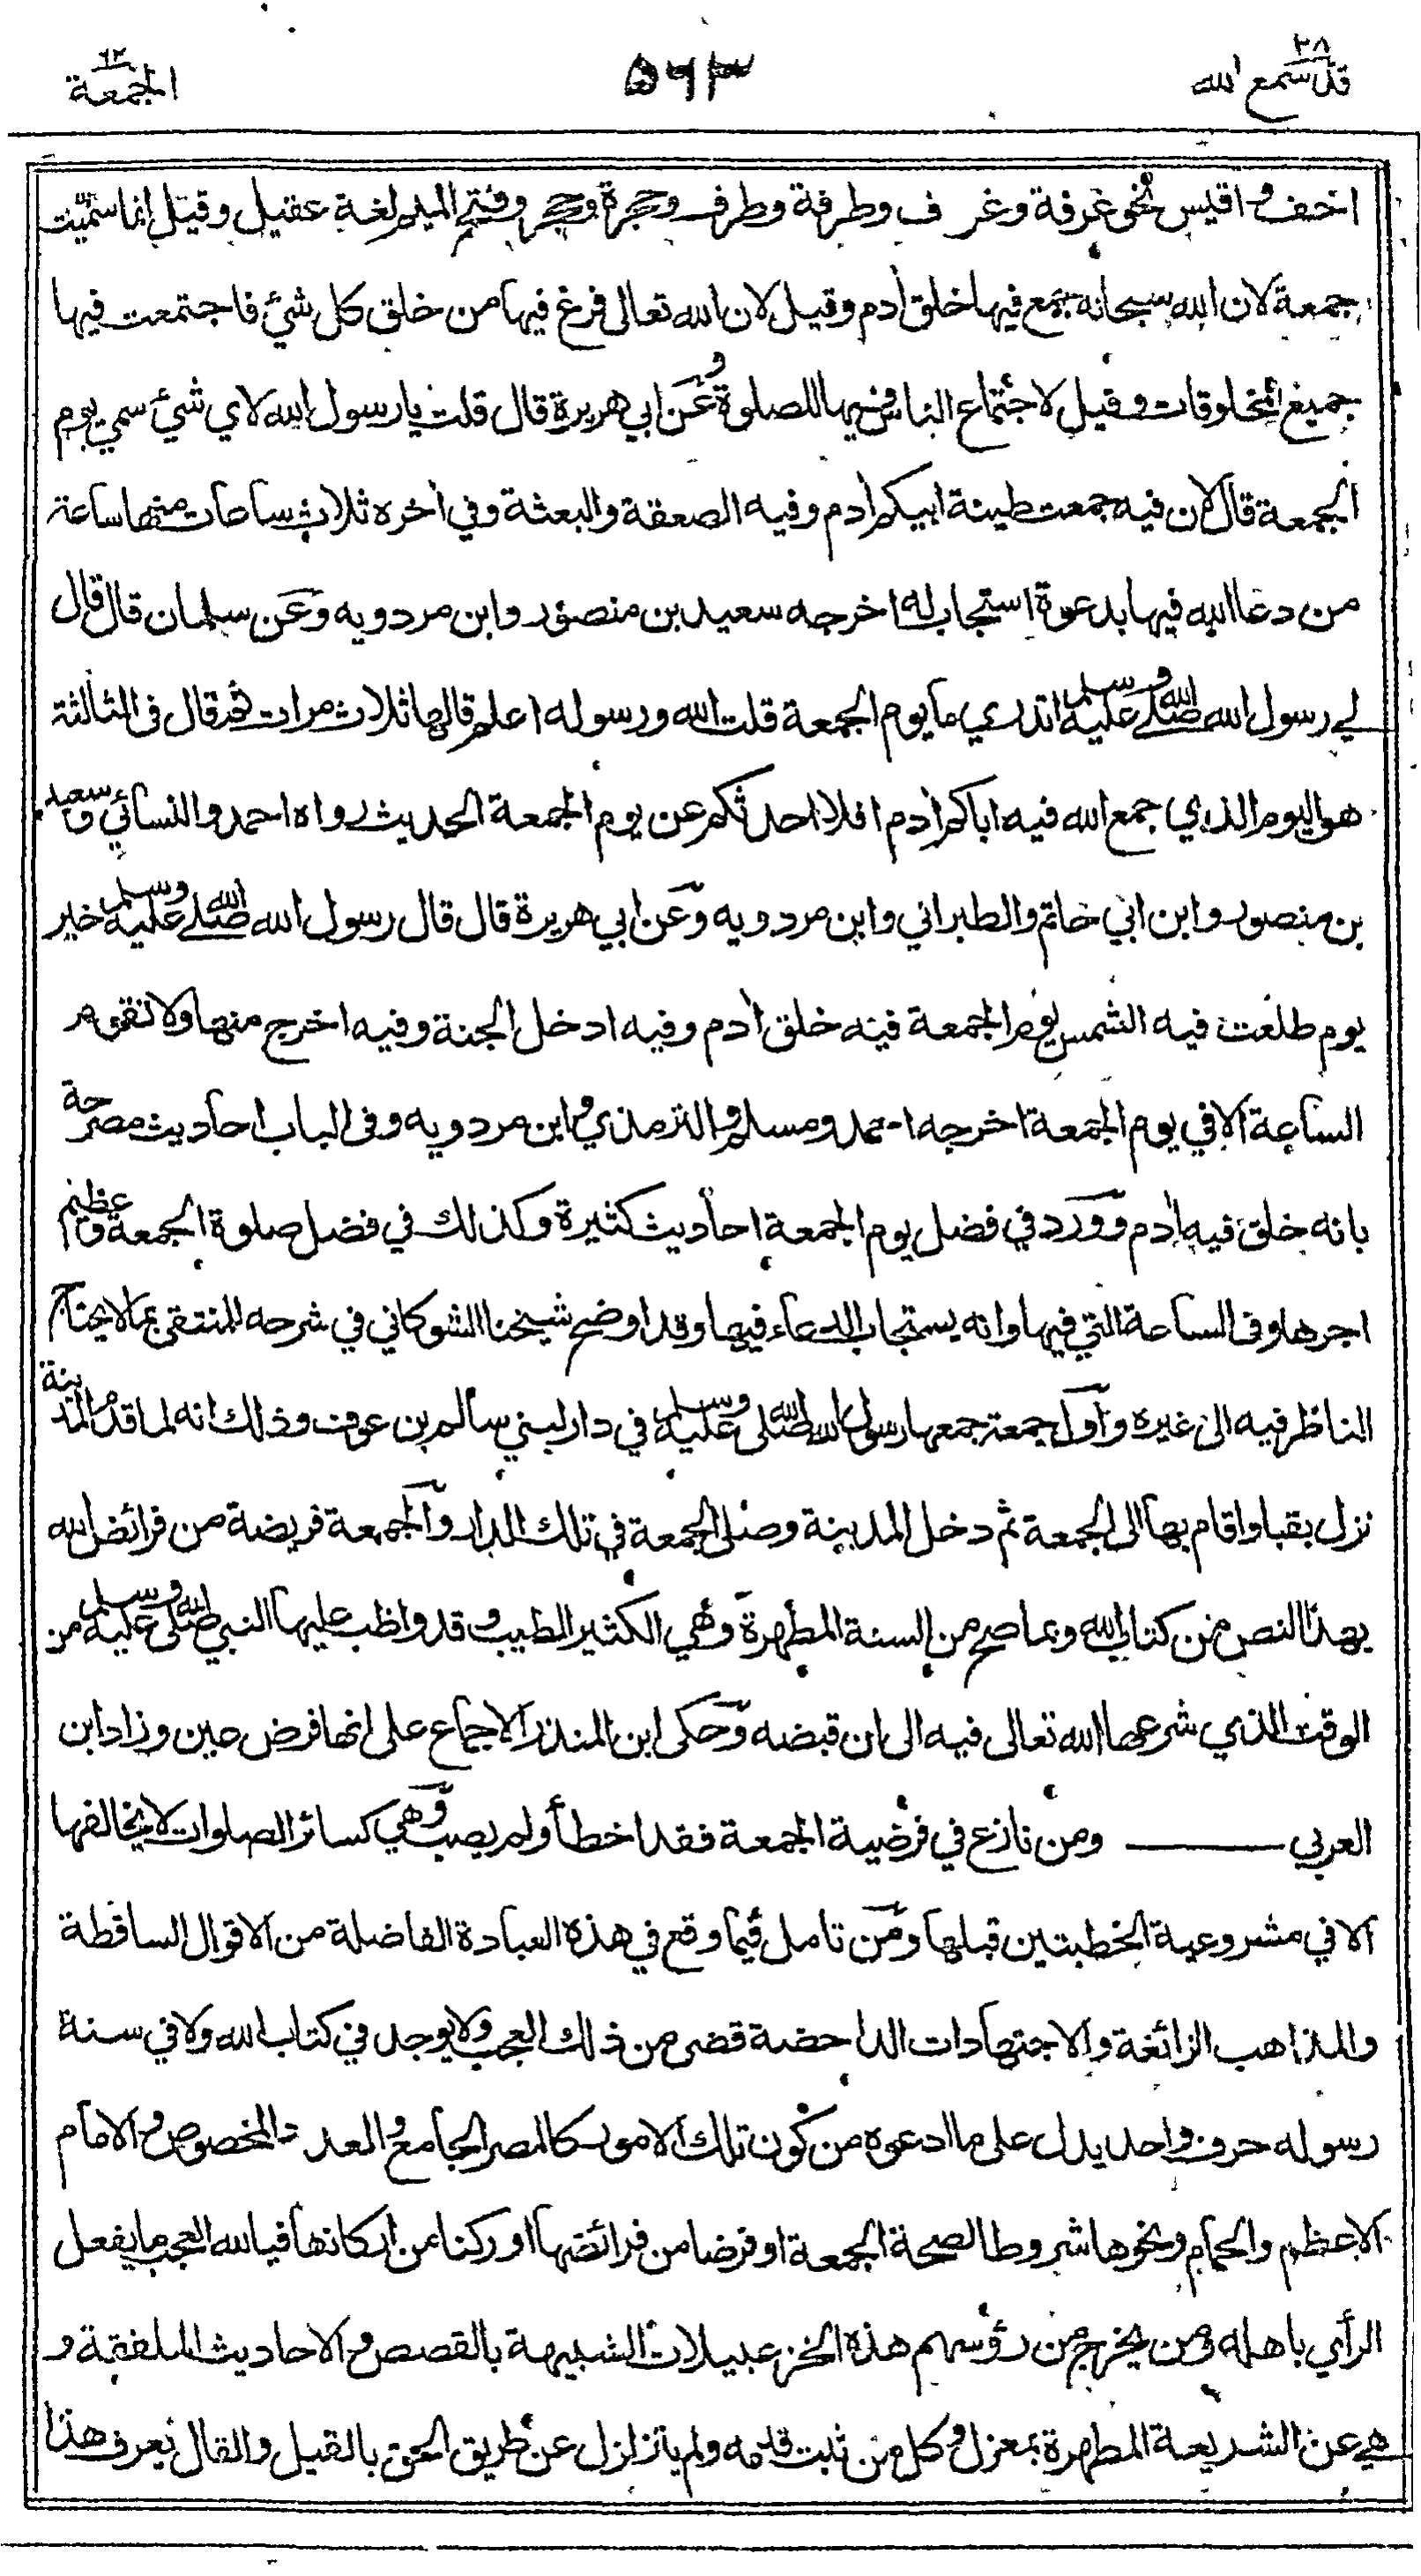 قد سمع الله ٢٨
٥٦٣
الجمعة ٦٢
اخف واقيس نحو غرفة وغرف وطرفة وطرف وحجرة وحجر وفتح الميم لغة عقيل وقيل انما سميت
جمعة لان الله سبحانه جمع فيها خلق أدم وقيل لان الله تعالى فرغ فيها من خلق كل شيء فاجتمعت فيها
جميع المخلوقات وقيل لاجتماع الناس فيها للصلوة وعن ابي هريرة قال قلت يا رسول الله لاي شيء سمي يوم
الجمعة قال لان فيه جمعت طينة ابيكم أدم وفيه الصعقة والبعثة وفي أخره ثلاث ساعات منها ساعة
من دعا الله فيها بدعوة استجاب له اخرجه سعيد بن منصور وابن مردويه وعن سلمان قال قال
لي رسول الله صلى الله عليه وسلم اتدري ما يوم الجمعة قلت الله ورسوله اعلم قالها ثلاث مرات ثم قال في الثالثة
هو اليوم الذي جمع الله فيه اباكم أدم افلا احدثكم عن يوم الجمعة الحديث رواه احمد والنسائي وسعيد
بن منصور وابن ابي حاتم والطبراني وابن مردويه وعن ابي هريرة قال قال رسول الله صلى الله عليه وسلم خير
يوم طلعت فيه الشمس يوم الجمعة فيه خلق أدم وفيه ادخل الجنة وفيه اخرج منها ولا تقوم
الساعة الا في يوم الجمعة اخرجه احمد ومسلم والترمذي وابن مردويه وفى الباب احاديث مصرحة
بانه خلق فيه أدم وورد في فضل يوم الجمعة احاديث كثيرة وكذلك في فضل صلوة الجمعة وعظيم
اجرها وفى الساعة التي فيها وانه يستجاب الدعاء فيها وقد اوضح شيخنا الشوكاني في شرحه للمنتقى بما لا يحتاج
الناظر فيه الى غيره واول جمعة جمعها رسول الله صلى الله عليه وسلم في دار لبني سالم بن عوف وذلك انه لما قدم المدينة
نزل بقبا واقام بها الى الجمعة ثم دخل المدينة وصلى الجمعة في تلك الدار والجمعة فريضة من فرائض الله
بهذا النص من كتاب الله وبما صح من السنة المطهرة وهي الكثير الطيب وقد واظب عليها النبي صلى الله عليه وسلم من
الوقت الذي شرعها الله تعالى فيه الى ان قبضه وحكى ابن المنذر الاجماع على انها فرض عين وزاد ابن
العربي ومن نازع في فرضية الجمعة فقد اخطأ ولم يصب وهي كسائر الصلوات لا يخالفها
الا في مشروعية الخطبتين قبلها ومن تامل فيما وقع في هذه العبادة الفاضلة من الاقوال الساقطة
والمذاهب الزائغة والاجتهادات الداحضة قضى من ذلك العجب ولا يوجد في كتاب الله ولا في سنة
رسوله حرف واحد يدل على ما ادعوه من كون تلك الامور كالمصر الجامع والعدد المخصوص والامام
الاعظم والحمام ونحوها شروطا لصحة الجمعة او فرضا من فرائضها او ركنا من اركانها فيا لله العجب ما يفعل
الرأي باهله ومن يخرج من رؤسهم هذه الخزعبيلات الشبيهة بالقصص والاحاديث الملفقة و
هي عن الشريعة المطهرة بمعزل وكل من ثبت قدمه ولم يتزلزل عن طريق الحق بالقيل والقال يعرف هذا